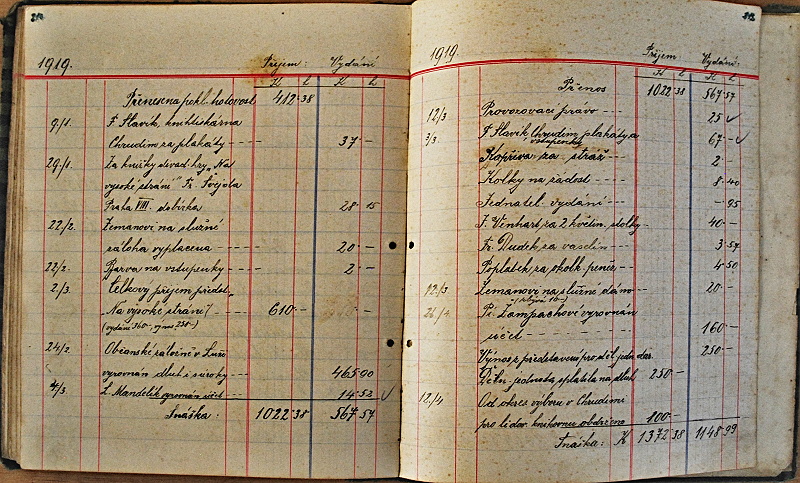 1919. Příjem: Vydání
K h K h
Přenesena pokl. hotovost 412·38
9/1. F. Slavík, knihtiskárna
Chrudim za plakáty ---- 37·—
29/1. Za knížky divad. hry „Na
vysoké stráni" Fr. Švejda
Praha VIII. dobírka 28·15
22/2. Zemanovi na služné
záloha vyplacena ---- 20·—
22/2. Barva na vstupenky --- 2·—
2/3. Celkový příjem předst. „
Na vysoké stráni ( --- 610·—
(vydání 360·—, výnos 250·—)
24/2. Občanské záložně v Luži
vyrovnán dluh i s úroky --- 465·90
4/3. L. Mandelík vyrovnán účet --- 14·52
Snáška. 1022·38 567·57
1919. Příjem: Vydání:
K h K h
Přenos 1022·38 567·57
12/3 Provozovací právo --- 25
3/3. F. Slavík Chrudim, plakáty a
vstupenky 67·—
Kopřiva za stráž -- 2·—
Kolky na žádost --- 8·40
Jednatel. vydání --- — 95
F. Venhart za 2 květin. stolky - 40·—
Fr. Dudek za vaselin --- 3·57
Poplatek za školk. peněz -- 4·50
12/3. Zemanovi na služné dáno -- 20·—
(zbývá 10·—)
Vl. Lampachové vyrovnán
účet --- 160·—
Výnos z představení pro děl. jedn. dar. 250·—
Děln. jednota, splatila na dluh 250·—
12/4 Od okres. výboru v Chrudimi
pro lidov. knihovnu obdrženo 100·—
Snáška: K 1372·38 1148·99